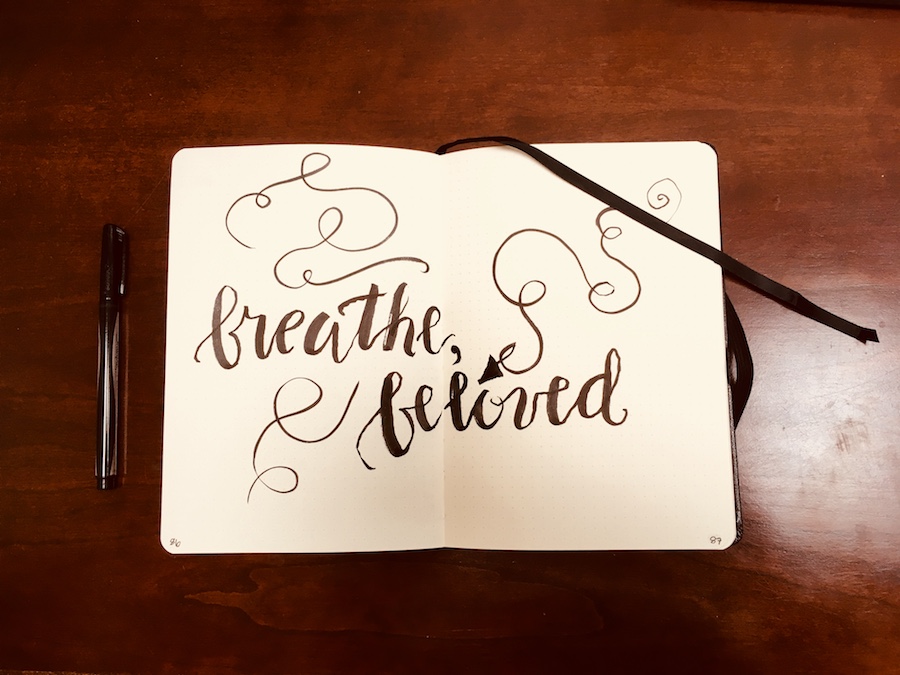 breathe,
beloved
86
87